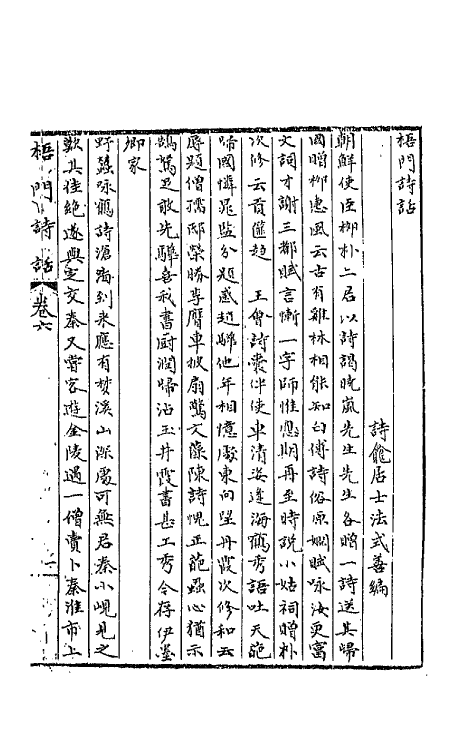 梧門詩話
詩龕居士法式善編
朝鮮使臣柳朴二君以詩謁曉嵐先生先生各贈一詩送其歸
國贈柳惠風云古有雞林相能知白傅詩俗原嫻賦詠汝更富
文詞才謝三都賦言慚一字師惟應期再至時說小姑祠贈朴
次修云貢篚趨 王會詩囊伴使車清姿逢海鶴秀語吐天葩
歸國憐晁監分題感趙驊他年相憶處東向望丹霞次修和云
辱題僧孺邸榮勝李膺車披扇驚文藻陳詩愧正葩蟲心猶示
鵠駑足敢先驊喜我書廚潤歸沾玉井霞書甚工秀今存伊墨
卿家
野蠶咏鶴詩滄海到來應有
溪山深處可無君秦小峴見之
歎其佳絕遂與定交秦又嘗客遊金陵遇一僧賣卜秦淮市上
梧門詩話 卷六
一